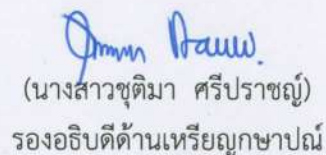 (นางสาวชุติมา ศรีปราชญ์)
รองอธิบดีด้านเหรียญกษาปณ์